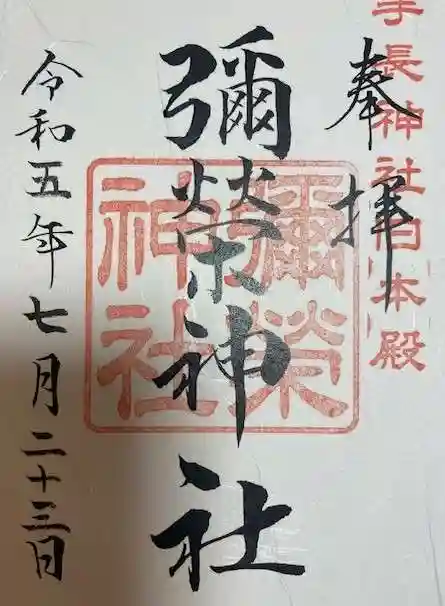 手長神社旧本殿
奉拝
彌榮神社
彌榮神社
令和五年七月二十三日